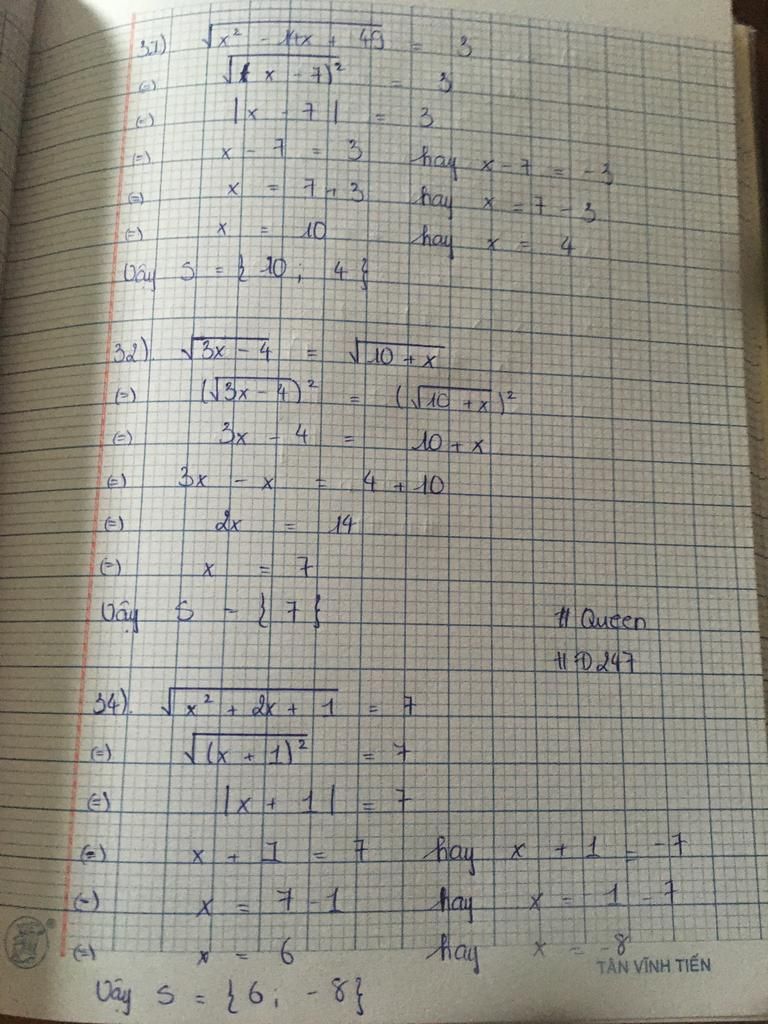 31) √(x² - 14x + 49) = 3
(=) √(x - 7)² = 3
(=) |x - 7| = 3
(=) x - 7 = 3 hay x - 7 = -3
(=) x = 7 + 3 hay x = 7 - 3
(=) x = 10 hay x = 4
Vậy S = { 10 ; 4 }
32). √(3x - 4) = √(10 + x)
(=) (√(3x - 4))² = (√(10 + x))²
(=) 3x - 4 = 10 + x
(=) 3x - x = 4 + 10
(=) 2x = 14
(=) x = 7
Vậy S = { 7 }
# Queen
# FD247
34). √(x² + 2x + 1) = 7
(=) √(x + 1)² = 7
(=) |x + 1| = 7
(=) x + 1 = 7 hay x + 1 = -7
(=) x = 7 - 1 hay x = -1 - 7
(=) x = 6 hay x = -8
TÂN VĨNH TIẾN
Vậy S = { 6 ; - 8 }